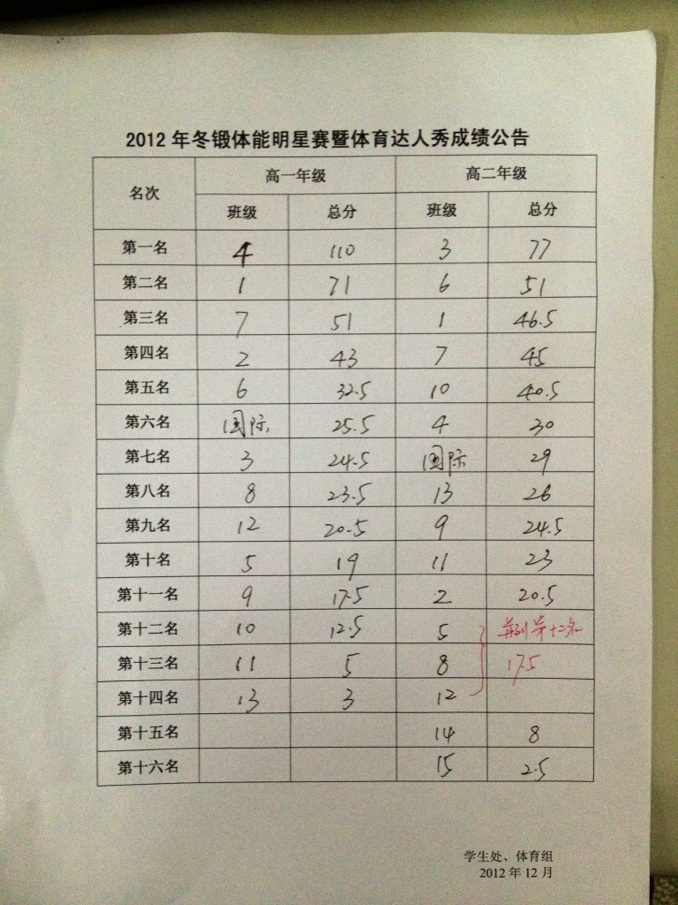 2012年冬锻体能明星赛暨体育达人秀成绩公告
名次 高一年级 高二年级
班级 总分 班级 总分
第一名 4 110 3 77
第二名 1 71 6 51
第三名 7 51 1 46.5
第四名 2 43 7 45
第五名 6 32.5 10 40.5
第六名 国际 25.5 4 30
第七名 3 24.5 国际 29
第八名 8 23.5 13 26
第九名 12 20.5 9 24.5
第十名 5 19 11 23
第十一名 9 17.5 2 20.5
第十二名 10 12.5 5 并列第十二名
第十三名 11 5 8 17.5
第十四名 13 3 12
第十五名 14 8
第十六名 15 2.5
学生处、体育组
2012年12月